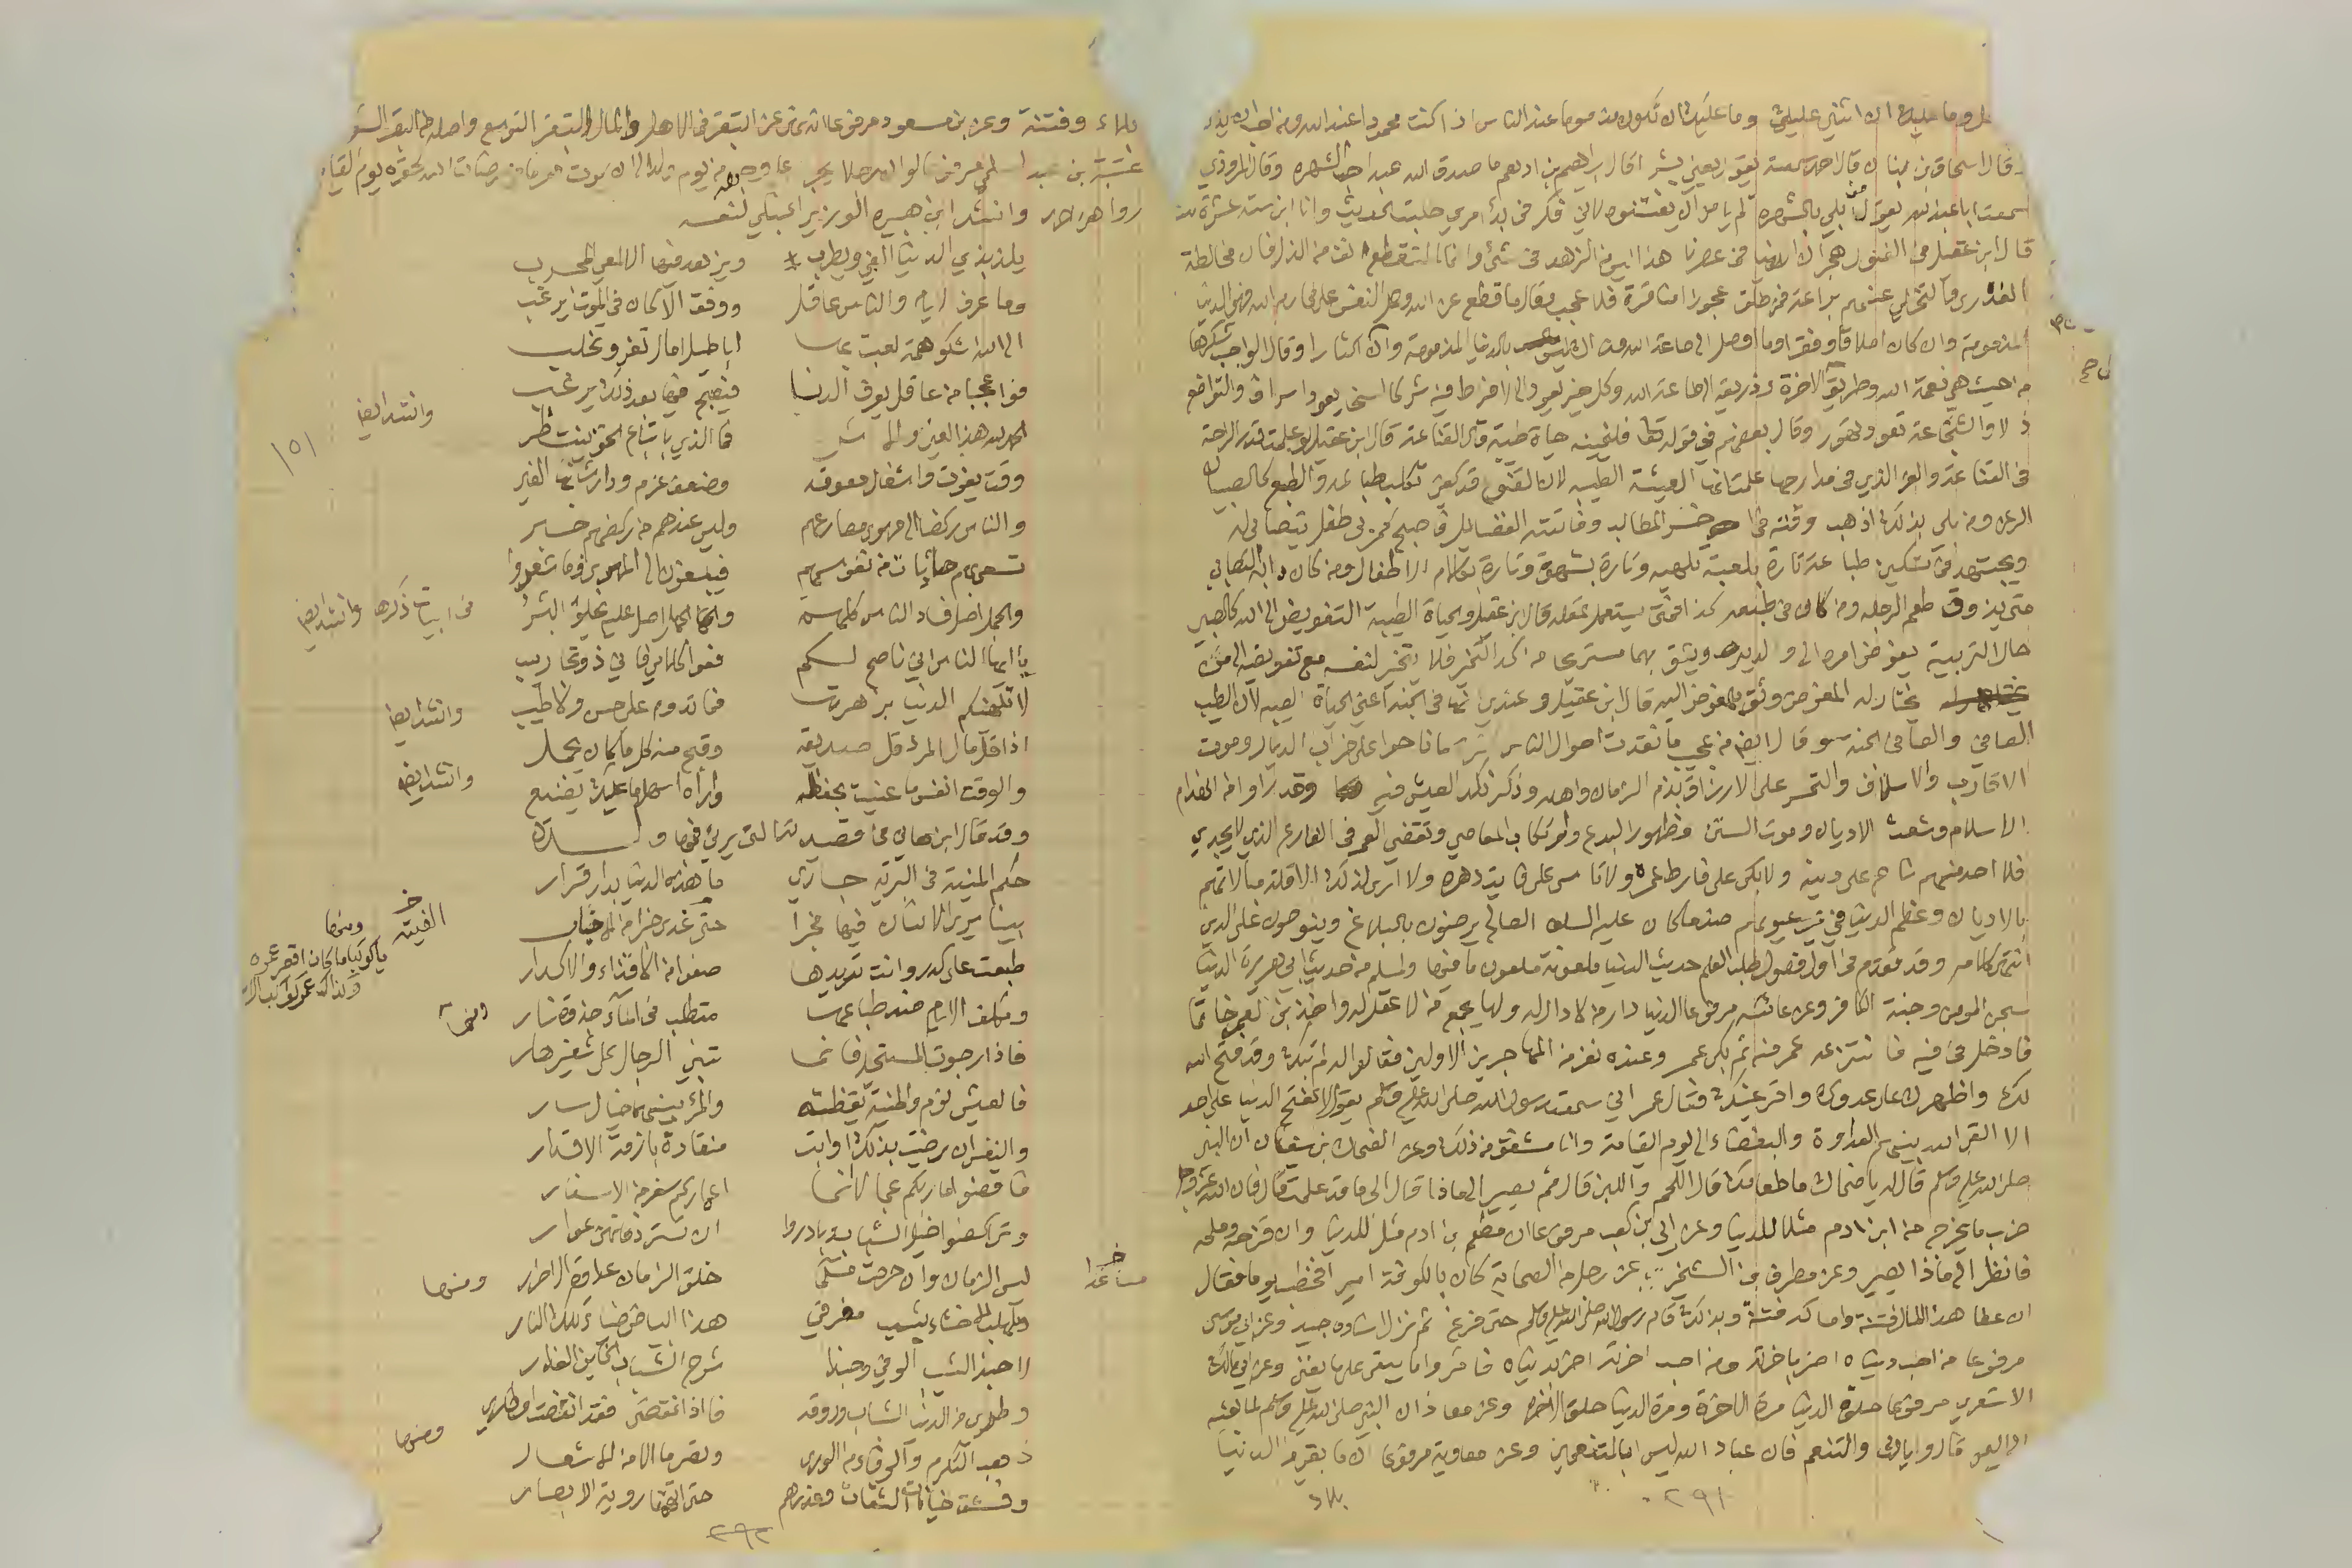 وما عليك ان اثني عليك وما عليك ان تكون مذموما عند الناس اذا كنت محمودا عند الله ومن احب ان يذكر
قال اسحاق بن بنان قال احمد سمعته يقول يعني بشر قال ابراهيم بن ادهم ما صدق الله عبد احب الشهرة وقال المروذي
سمعت ابا عبد الله يقول من بلي بالشهرة لم يامن ان يفتنوه لاني فكر في بدأ امري طلبت الحديث وانا ابن ست عشرة
قال ابن عقيل في الفنون هجران الدنيا في عصرنا هذا ليس من الزهد في شئ وانما المنقطع انف من الذل فان مخالطة
القدري والتخلي عنهم براعة فمن طلق عجوزا مناقرة فلا عجب
المذمومة وان كان املاقا وفقرا وما اوصل الى طاعة الله فليس بالدنيا المذمومة وان اكثارا وقال الواجب شكرها
من حيث هي نعمة الله وطريق الاخرة وذريعة الى طاعة الله وكل خير يعود الى الافراط فيه شر كالسخاء يعود اسرافا والتواضع
ذلا والشجاعة تعود تهور وقال بعضهم في قوله تعالى فلنحيينه حياة طيبة قال القناعة قال ابن عقيل لو علمت قدر الراحة
في القناعة والعز الذي في مدارجها علمت انها العيشة الطيبة لان القنوع قد كفي تكلب طباعه والطبع كالصبيان
الرعن ومن بلي بذلك اذهب وقته في اخس المطالب وفاتته الفضائل فاصبح كمربي طفل يتصابى له
ويجتهد في تسكين طباعه تارة بلعبة تلهيه وتارة بشهوة وتارة بكلام الاطفال ومن كان دابه التصابي
متى يذوق طعم الرجلة ومن كان في طبعه كذا فمتى يستعمل عقله قال ابن عقيل والحياة الطيبة التفويض الى الله كالصبي
حال التربية يفوض امره الى والديه ويثق بهما مستريحا من كد التخير فلا يتخير لنفسه مع تفويضه الى من
يختار له المفوض وثق بالمفوض اليه قال ابن عقيل وعندي انها في الجنة اعني الحياة الطيبة لان الطيب
الصافي والصافي في الجنة وقال ايضا من عجيب ما نقدت احوال الناس كثرة ما ناحوا على خراب الديار وموت
الاقارب والاسلاف والتحسر على الارزاق بذم الزمان واهله وذكر نكد العيش فيه وقد راوا من انهدام
الاسلام وشعث الاديان وموت السنن وظهور البدع وارتكاب المعاصي وتقضي العمر في الفارغ الذي لا يجدي
فلا احد منهم ناح على دينه ولا بكى على فارط عمره ولا تاسى على فايت دهره ولا ارى لذلك الا قلة مبالاتهم
بالاديان وعظم الدنيا في عيونهم ضد ما كان عليه السلف الصالح يرضون بالبلاغ وينوحون على الدين
انتهى كلامه وقد تقدم في اول فصول طلب العلم حديث الدنيا ملعونة ملعون ما فيها ولمسلم من حديث ابي هريرة الدنيا
سجن المومن وجنة الكافر وعن عائشة مرفوعا الدنيا دار من لا دار له ولها يجمع من لا عقل له
فادخل في فيه فانتزعه عمر منه ثم بكى عمر وعنده نفر من المهاجرين الاولين فقالوا له لم تبكي وقد فتح الله
لك واظهرك على عدوك واقر عينك فقال عمر اني سمعت رسول الله صلى الله عليه وسلم يقول لا تفتح الدنيا على احد
الا القى الله بينهم العداوة والبغضاء الى يوم القيامة وانا مشفق من ذلك وعن الضحاك بن سفيان ان النبي
صلى الله عليه وسلم قال له يا ضحاك ما طعامك قال اللحم واللبن قال ثم يصير الى ماذا قال الى ما قد علمت قال فان الله عز وجل
ضرب ما يخرج من ابن ادم مثلا للدنيا وعن ابي بن كعب مرفوعا ان مطعم بن ادم مثل للدنيا وان قزحه وملحه
فانظر الى ماذا يصير وعن مطرف بن الشخير عن رجل من الصحابة كان بالكوفة امير فخطب يوما فقال
ان عطا هذا المال فتنة وامساكه فتنة وبذلك قام رسول الله صلى الله عليه وسلم حتى فرغ ثم نزل اسناده جيد وعن ابي موسى
مرفوعا من احب دنياه اضر باخرته ومن احب اخرته اضر بدنياه فاثروا ما يبقى على ما يفنى وعن ابي مالك
الاشعري مرفوعا حلوة الدنيا مرة الاخرة ومرة الدنيا حلوة الاخرة وعن معاذ ان النبي صلى الله عليه وسلم لما بعثه
الى اليمن قال اياك والتنعم فان عباد الله ليسوا بالمتنعمين وعن معاوية مرفوعا ان ما بقي من الدنيا
٢٩١
بلاء
بلاء وفتنة وعن بن مسعود مرفوعا انه نهى عن التبقر في الاهل والمال والتبقر التوسع واصله من البقر الشق
عتبة بن عبد مرفوعا لو ان رجلا يجر على وجهه من يوم ولد الى ان يموت هرما في مرضات الله لحقره يوم القيامة
رواهن احمد وانشد ابن هبيرة الوزير الحنبلي لنفسه
يلتذ بذي الدنيا الغني ويطرب ويزهد فيها الالمعي المجرب
وما عرف الايام والناس عاقل ووفق الا كان في الموت يرغب
الى الله اشكو همة لعبت بها اباطيل امال تغر وتخلب
فوا عجبا من عاقل يعرف الدنيا فيصبح فيها بعد ذلك يرغب
وانشد ايضا
الحمد لله هذا العين والاثر فما الذي باتباع الحق ينتظر
وقت يفوت واشغال معوقة وضعف عزم ودار شانها الغير
والناس ركضا الى مهوى مصارعهم وليس عندهم من ركضهم خبر
تسعى بهم حادثات من نفوسهم فيبلغون الى المهوى وما شعروا
والجهل اصل فساد الناس كلهم والجهل اصل عليه يخلق البشر
في ابيات ذكرها وانشد ايضا
يا ايها الناس اني ناصح لكم فعوا كلامي فاني ذو تجاريب
لا تلهينكم الدنيا بزهرتها فما تدوم على حسن ولا طيب
وانشد ايضا
اذا قل مال المرء قل صديقه وقبح منه كل ما كان يجمل
وانشد ايضا
والوقت انفس ما عنيت بحفظه واراه اسهل ما عليك يضيع
وقد قال ابن هاني في قصيدته التي يرثي فيها ولده
حكم المنية في البرية جاري ما هذه الدنيا بدار قرار
بينا يرى الانسان فيها مخبرا حتى غدى خبرا من الاخبار
طبعت على كدر وانت تريدها صفوا من الاقذاء والاكدار
ومكلف الايام ضد طباعها متطلب في الماء جذوة نار
فاذا رجوت المستحيل فانما تبني الرجاء على شفير هار
فالعيش نوم والمنية يقظة والمرء بينهما خيال سار
والنفس ان رضيت بذلك او ابت منقادة بازمة الاقدار
فاقضوا ماربكم عجالا انما اعماركم سفر من الاسفار
وتراكضوا خيل الشباب وبادروا ان تسترد فانهن عوار
ليس الزمان وان حرصت مسالما خلق الزمان عداوة الاحرار
ومنها
وتلهب الاحشاء شيب مفرقي هذا البياض شعاع تلك النار
لا حبذا الشيب الوفي وحبذا شرخ الشباب الخاين الغدار
وطري من الدنيا الشباب وروقه فاذا انقضى فقد انقضت اوطاري
ومنها
ذهب التكرم والوفاء من الورى وتصرما الا من الاشعار
وفشت خيانات الثقات وغيرهم حتى اتهمنا روية الابصار
١٥١
ومنها
يا كوكبا ما كان اقصر عمره
وكذاك عمر كواكب الاسحار
٢٩٢